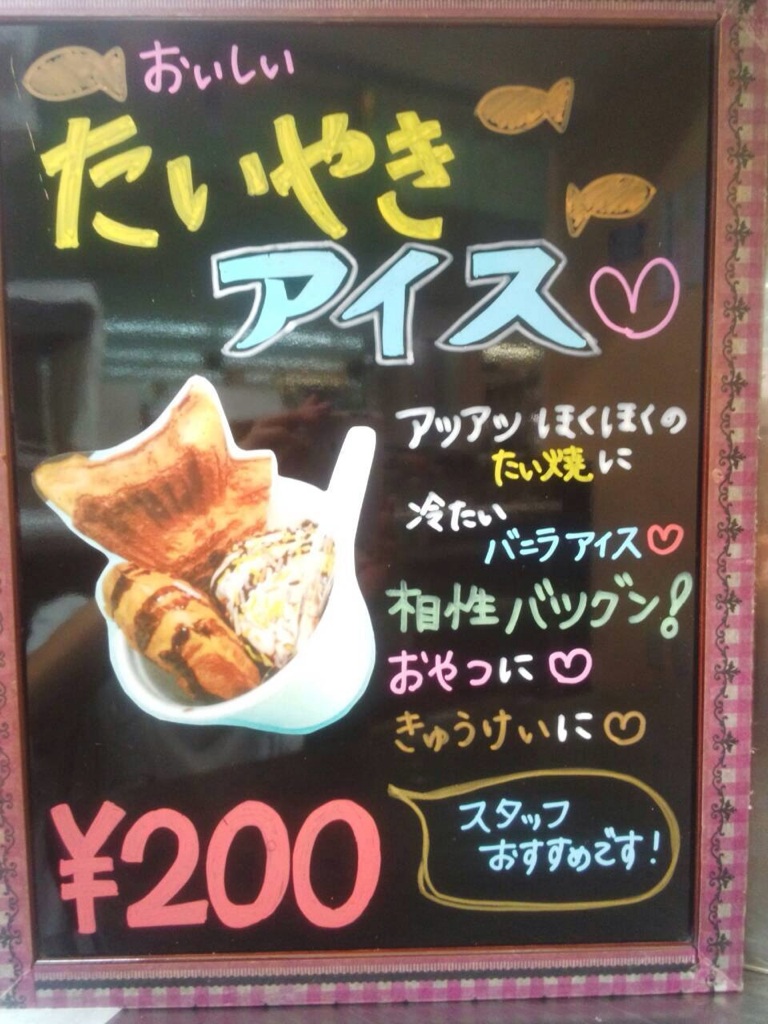 おいしい
たいやき
アイス
アツアツ ほくほくの
たい焼に
冷たい
バニラアイス
相性バツグン!
おやつに
きゅうけいに
¥200
スタッフ
おすすめです!